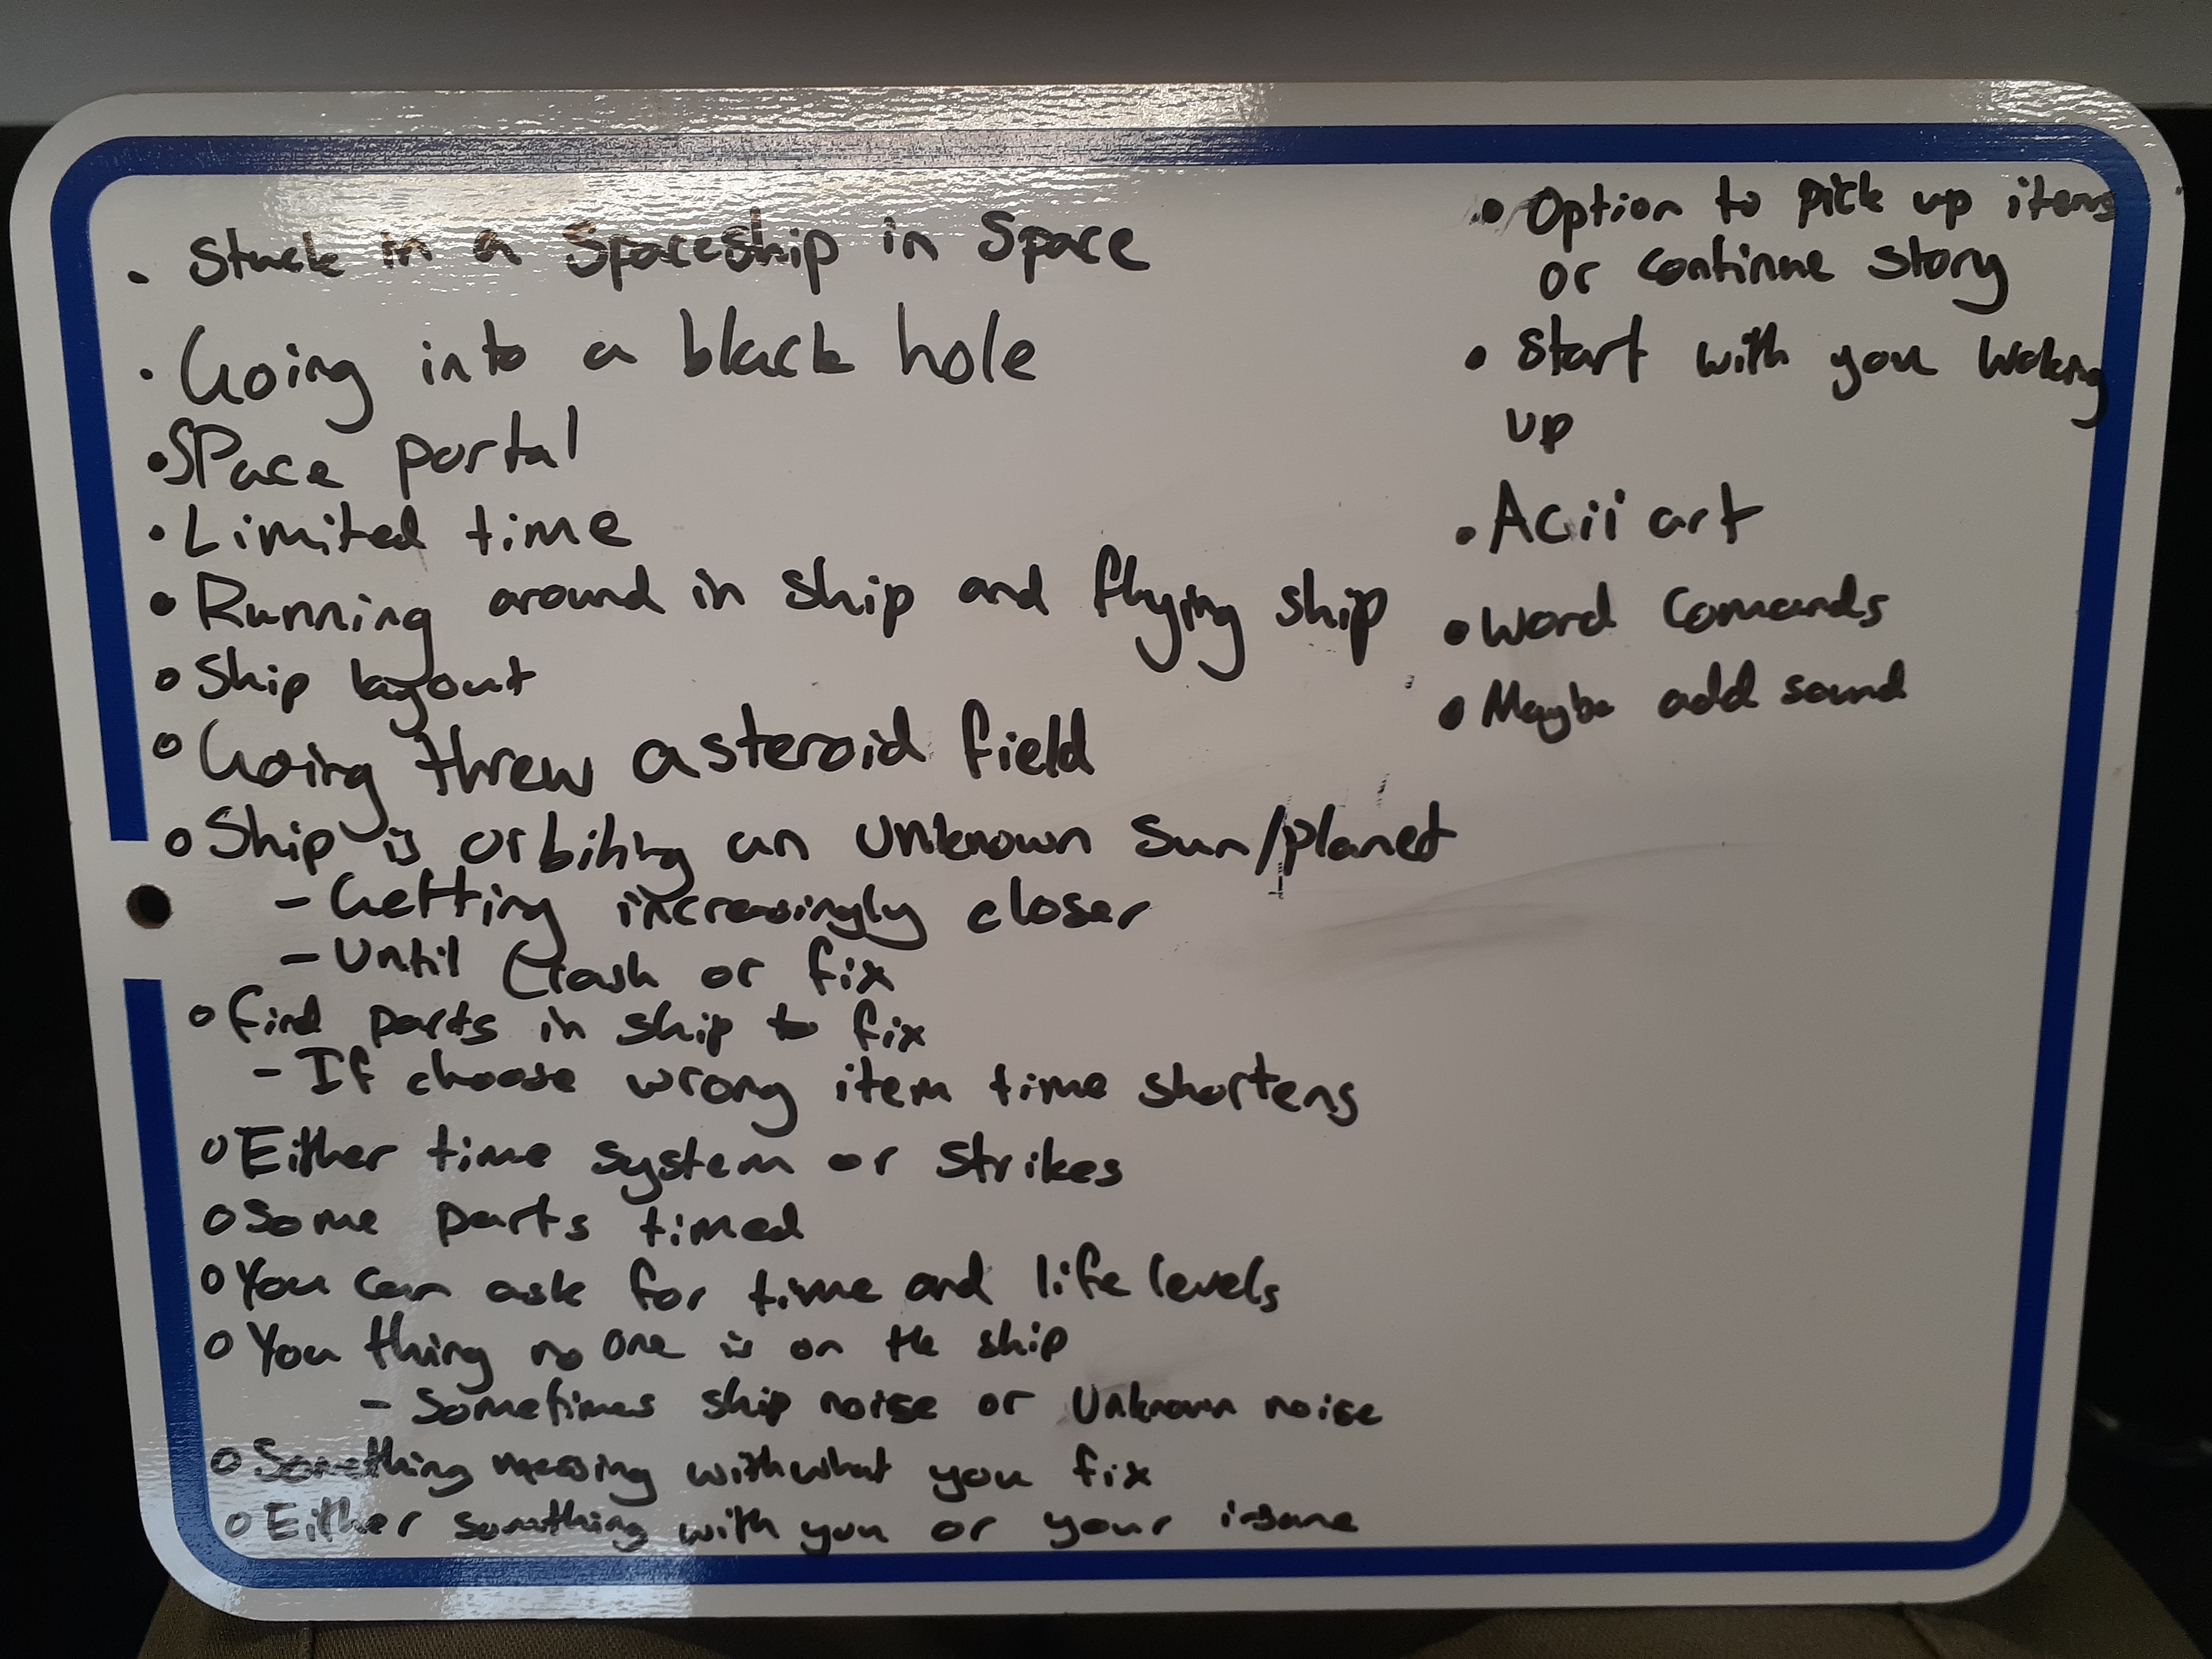 • Stuck in a Spaceship in Space
• Going into a black hole
• Space portal
• Limited time
• Running around in ship and flying ship
• Ship layout
• Going threw asteroid field
• Ship is orbiting an unknown Sun/planet
- Getting increasingly closer
- Until Crash or fix
• find parts in ship to fix
- If choose wrong item time shortens
• Either time system or strikes
• Some parts timed
• You can ask for time and life levels
• You thing no one is on the ship
- Sometimes ship noise or Unknown noise
• Something messing with what you fix
• Either something with you or your insane
• Option to pick up items
or continue story
• Start with you waking
up
• Acii art
• Word Comands
• Maybe add sound